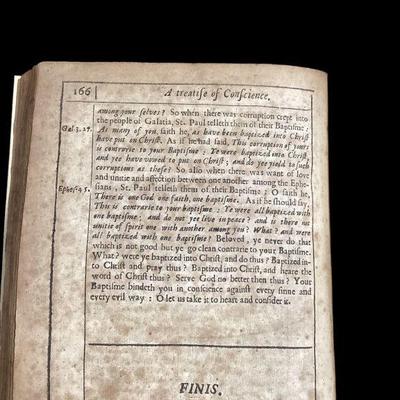 166 A treatise of Conſcience.
among your ſelves? So when there was corruption crept into
the people of Galatia, St. Paul telleth them of their Baptiſme:
Gal. 3. 27. As many of you, ſaith he, as have been baptized into Chriſt
have put on Chriſt. As if he had ſaid, This corruption of yours
is contrarie to your Baptiſme: Ye were baptized into Chriſt,
and yee have vowed to put on Chriſt; and do yee yield to ſuch
corruptions as theſe? So alſo when there was want of love
and unitie and affection between one another among the Ephe-
Epheſ. 4. 5. ſians, St. Paul telleth them of their Baptiſme; O ſaith he,
There is one God one faith, one baptiſme. As if he ſhould ſay,
This is contrarie to your baptiſme: Ye were all baptized with
one baptiſme; and do not ye live in peace? and is there no
unitie of ſpirit one with another among you? What? and were
all baptized with one baptiſme? Beloved, ye never do that
which is not good but ye go clean contrarie to your Baptiſme.
What? were ye baptized into Chriſt, and do thus? Baptized in-
to Chriſt and pray thus? Baptized into Chriſt, and heare the
word of Chriſt thus? Serve God no better then thus? Your
Baptiſme bindeth you in conſcience againſt every ſinne and
every evil way: O let us take it to heart and conſider it.
FINIS.